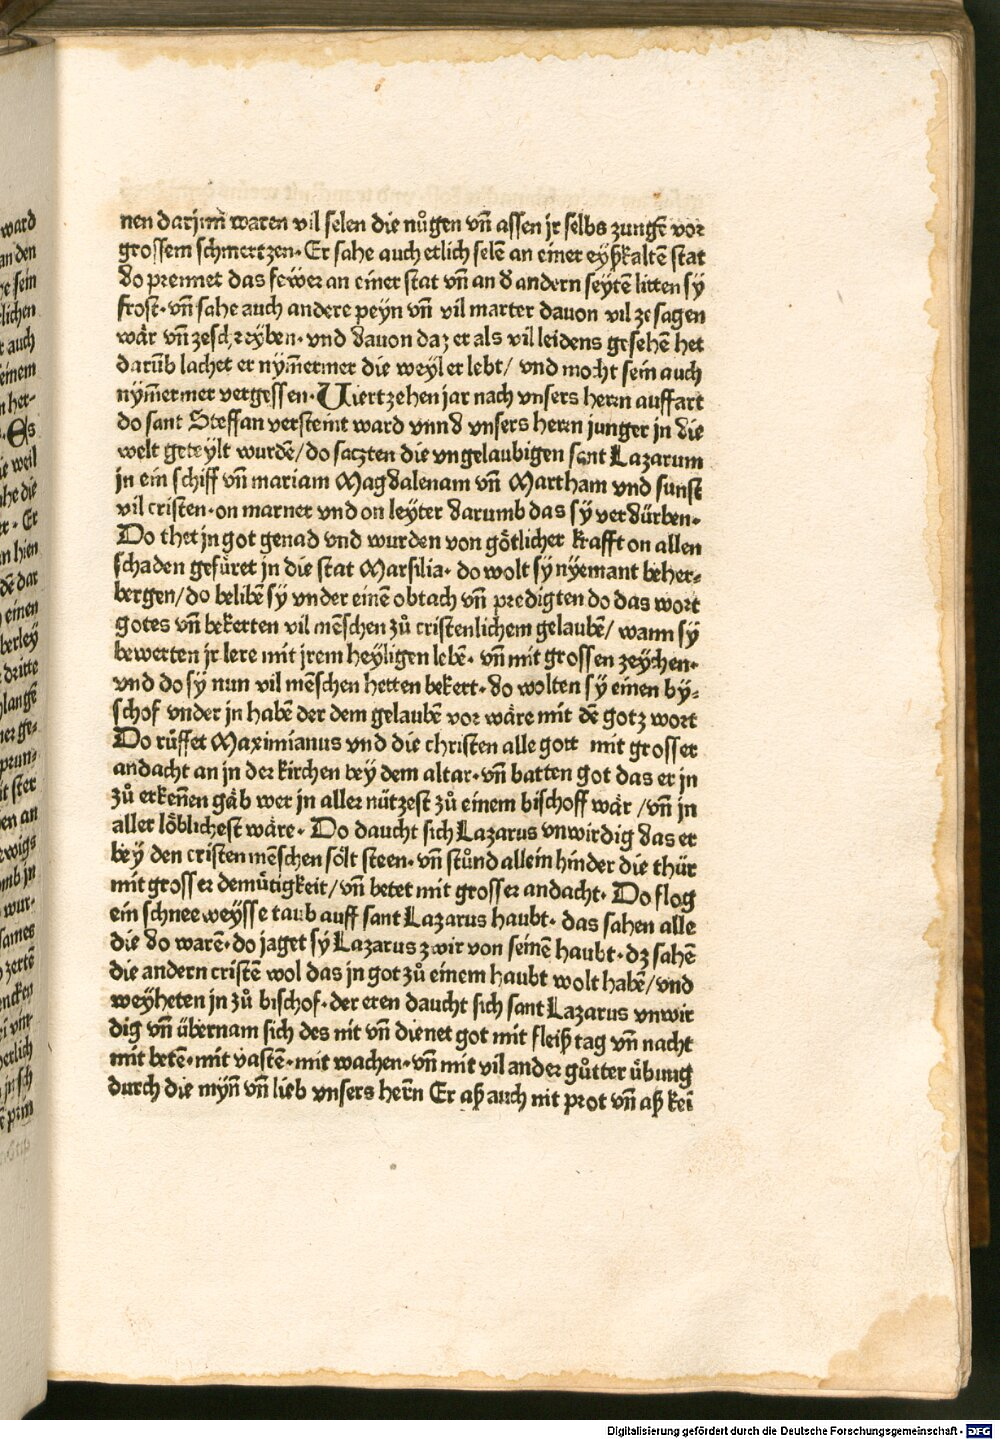 nen darjnn waren vil selen die nůgen vñ assen jr selbs zungē vor
grossem schmertzen· Er sahe auch etlich selē an einer eyßkaltē stat
do prennet das fewer an einer stat vñ an d andern seytē litten sy
frost· vñ sahe auch andere peyn vñ vil marter dauon vil ze sagen
wär vñ zeschreyben· vnd dauon daz er als vil leidens gesehē het
darūb lachet er nym̄ermer die weyl er lebt/ vnd mocht sein auch
nym̄ermer vergessen· Viertzehen jar nach vnsers herrn auffart
do sant Steffan versteint ward vnnd vnsers herrn junger jn die
welt geteylt wurdē/ do saczten die vngelaubigen sant Lazarum
jn ein schiff vñ mariam Magdalenam vñ Martham vnd sunst
vil cristen· on marner vnd on leyter darumb das sy verdürben·
Do thet jn got genad vnd wurden von götlicher krafft on allen
schaden gefüret jn die stat Marsilia· do wolt sy nyemant beher⸗
bergen/ do belibē sy vnder einē obtach vñ predigten do das wort
gotes vñ bekerten vil mēschen zů cristenlichem gelaubē/ wann sy
bewerten jr lere mit jrem heyligen lebē· vñ mit grossen zeychen·
vnd do sy nun vil mēschen hetten bekert· do wolten sy einen by⸗
schof vnder jn habē der dem gelaubē vor wäre mit dē gotz wort
Do rüffet Maximianus vnd die christen alle gott mit grosser
andacht an jn der kirchen bey dem altar· vñ batten got das er jn
zů erkeñen gäb wer jn aller nützest zů einem bischoff wär /vñ jn
aller löblichest wäre· Do daucht sich Lazarus vnwirdig das er
bey den cristen mēschen sölt steen· vñ stůnd allein hinder die thür
mit grosser demütigkeit/ vñ betet mit grosser andacht· Do flog
ein schneeweysse taub auff sant Lazarus haubt· das sahen alle
die do warē· do jaget sy Lazarus zwir von seinē haubt· dz sahē
die andern cristē wol das jn got zů einem haubt wolt habē/ vnd
weyheten jn zů bischof· der eren daucht sich sant Lazarus vnwir
dig vñ übernam sich des nit vñ dienet got mit fleiß tag vñ nacht
mit betē· mit vastē· mit wachen· vñ mit vil ander gůtter übung
durch die myñ vñ lieb vnsers herñ Er aß auch nit prot vñ aß kei
Digitalisierung gefördert durch die Deutsche Forschungsgemeinschaft - DFG